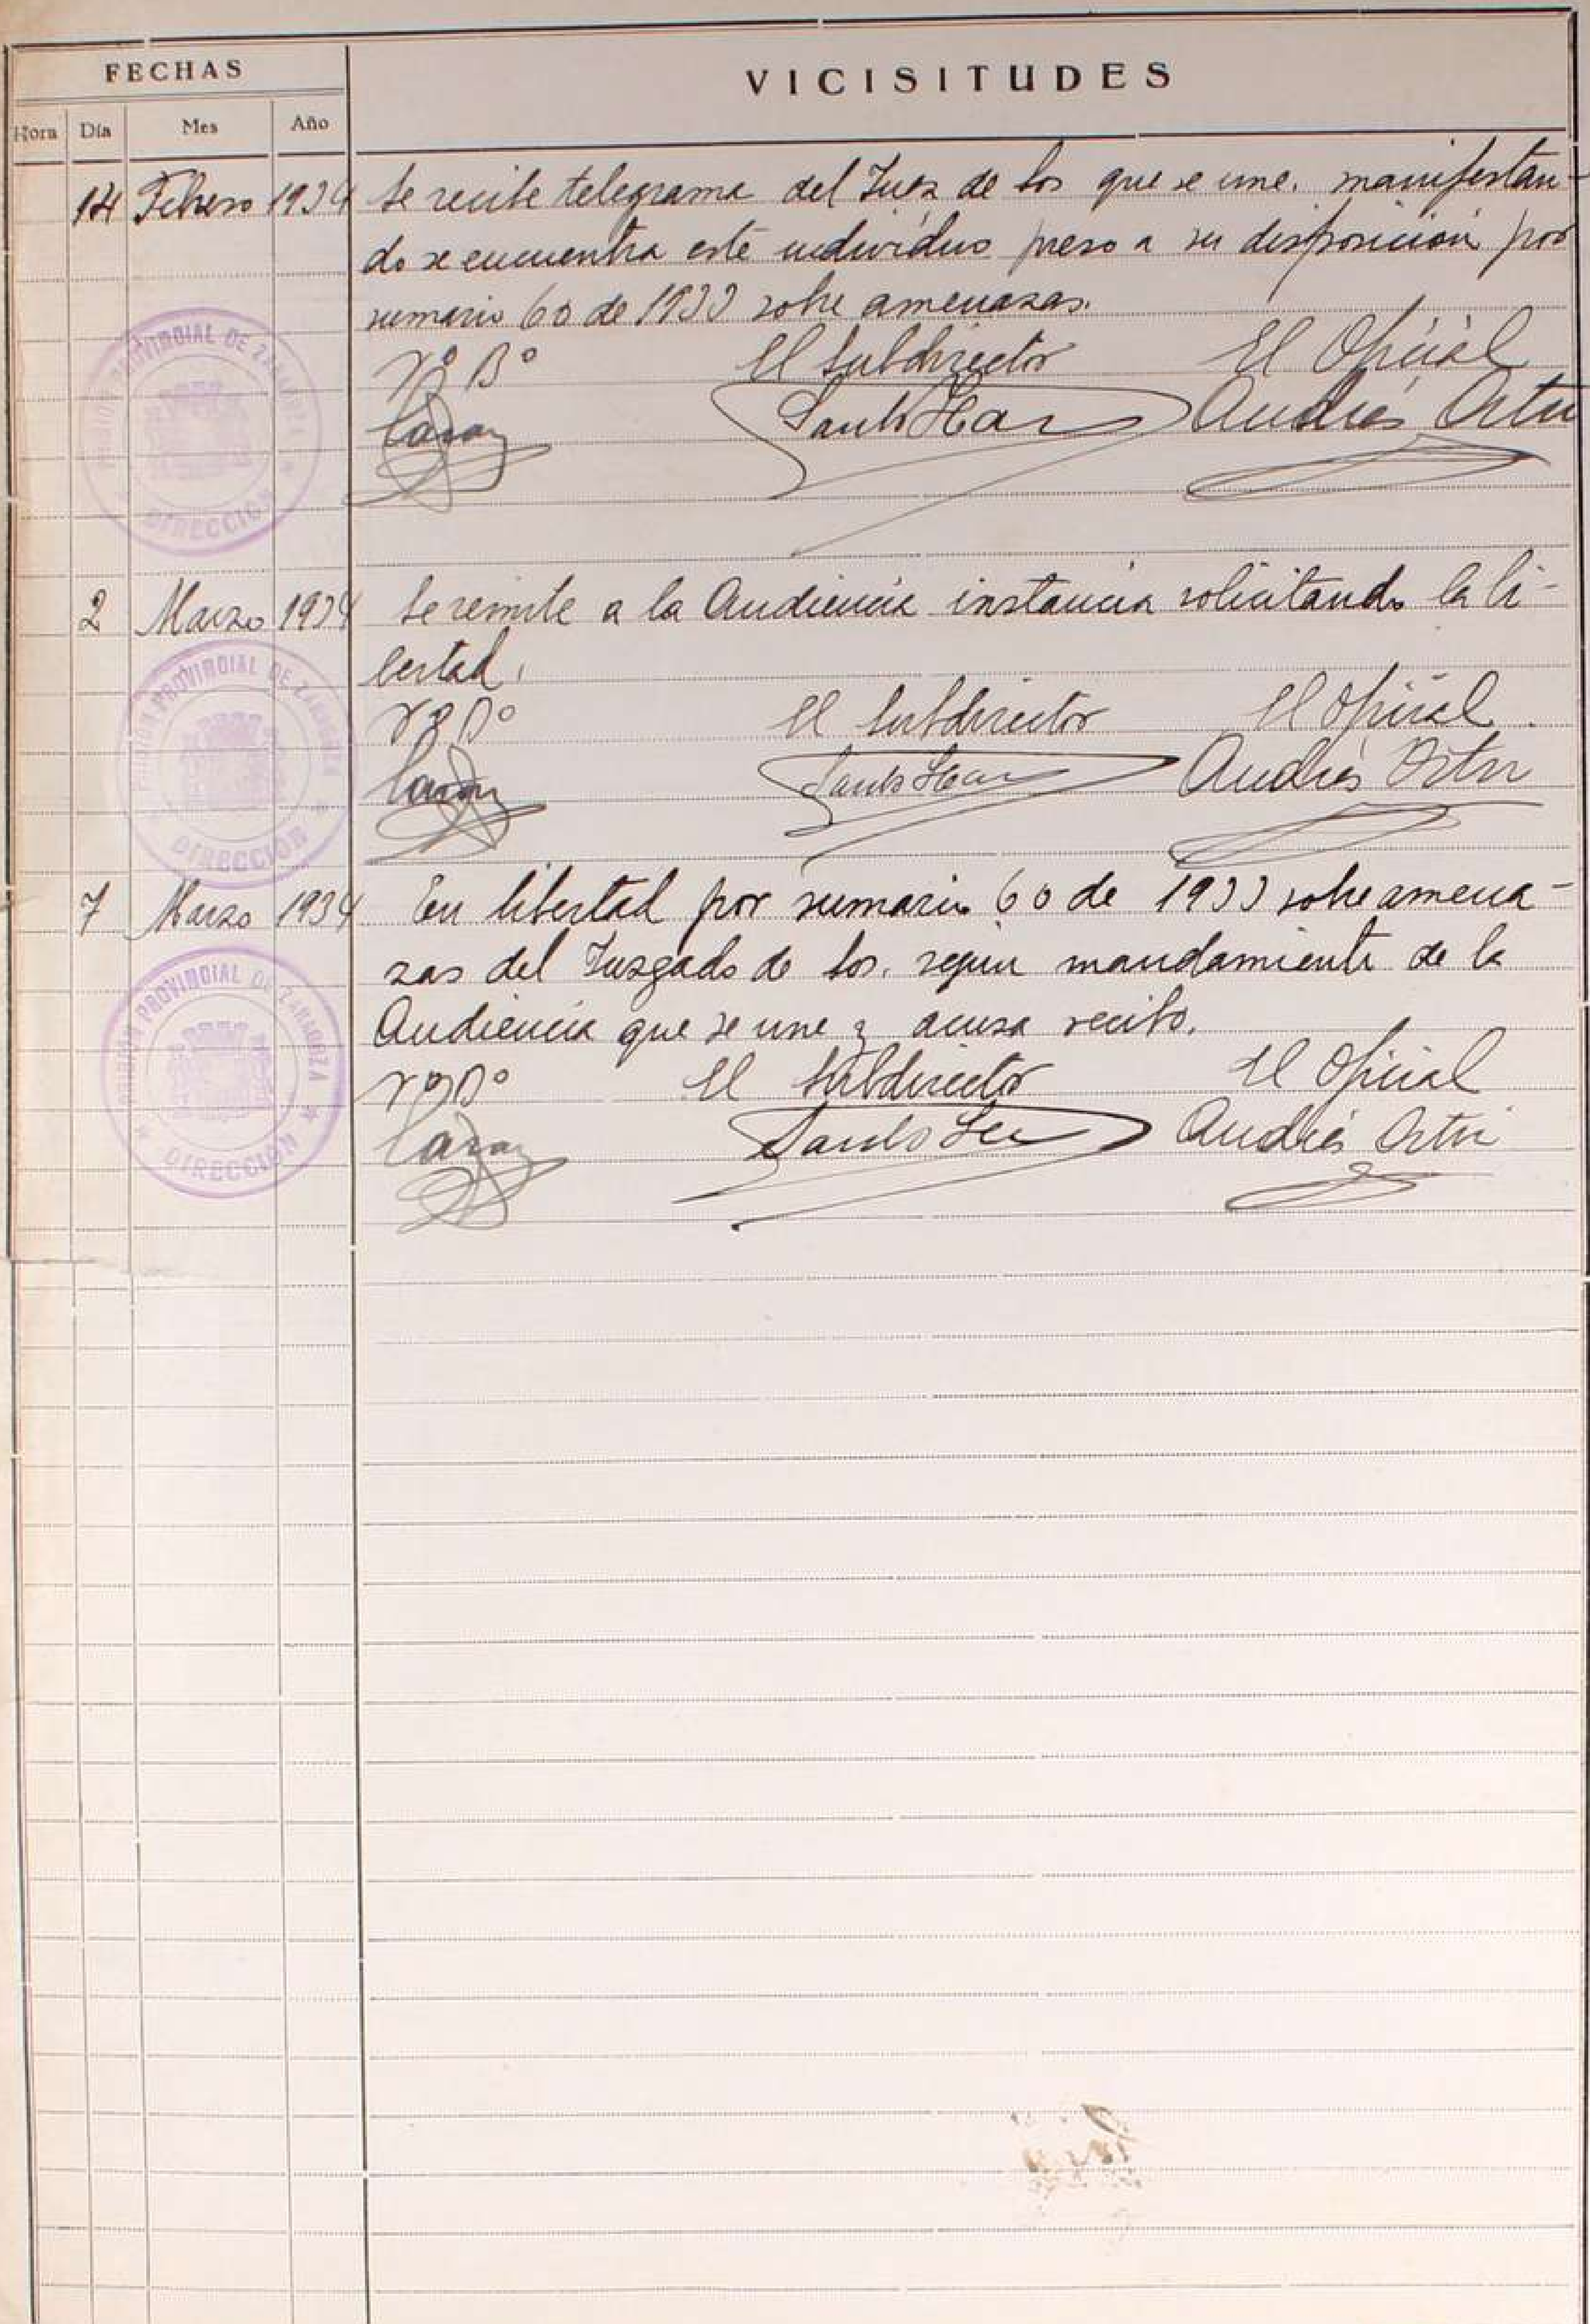 FECHAS
VICISITUDES
Hora Día Mes Año
14 Febrero 1934 Se recibe telegrama del Juez de Sos que se une. manifestan-
do se encuentra este individuo preso a su disposición por
sumario 60 de 1933 sobre amenazas.
Vº Bº El Subdirector El Oficial
Andrés
PRISIÓN PROVINCIAL DE ZARAGOZA
DIRECCIÓN
2 Marzo 1934 Se remite a la Audiencia instancia solicitando la li-
bertad.
Vº Bº El Subdirector El Oficial.
Andrés
PRISIÓN PROVINCIAL DE ZARAGOZA
DIRECCIÓN
7 Marzo 1934 En libertad por sumario 60 de 1933 sobre amena-
zas del Juzgado de Sos. según mandamiento de la
Audiencia que se une y acusa recibo.
Vº Bº El Subdirector El Oficial
Andrés
PRISIÓN PROVINCIAL DE ZARAGOZA
DIRECCIÓN